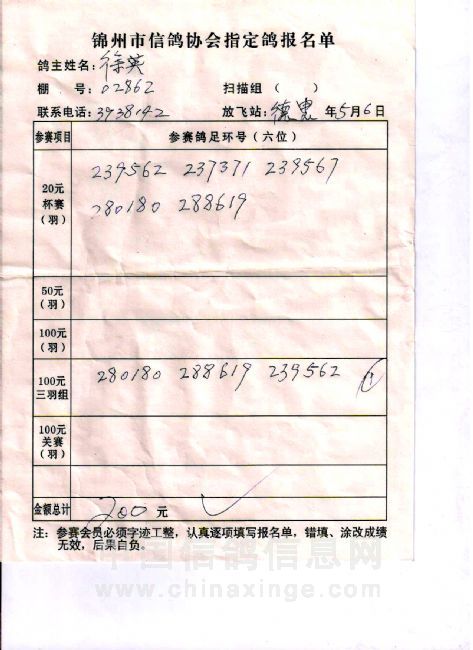 锦州市信鸽协会指定鸽报名单
鸽主姓名：徐英
棚 号：02862 扫描组（ ）
联系电话：3938142 放飞站：德惠 年5月6日
参赛项目 参赛鸽足环号（六位）
20元
杯赛
（羽）
239562 237371 239567
280180 288619
50元
（羽）
100元
（羽）
100元
三羽组
280180 288619 239562
100元
关赛
（羽）
金额总计 200元
注：参赛会员必须字迹工整，认真逐项填写报名单，错填、涂改成绩
无效，后果自负。
中国信鸽信息网
www.chinaxinge.com